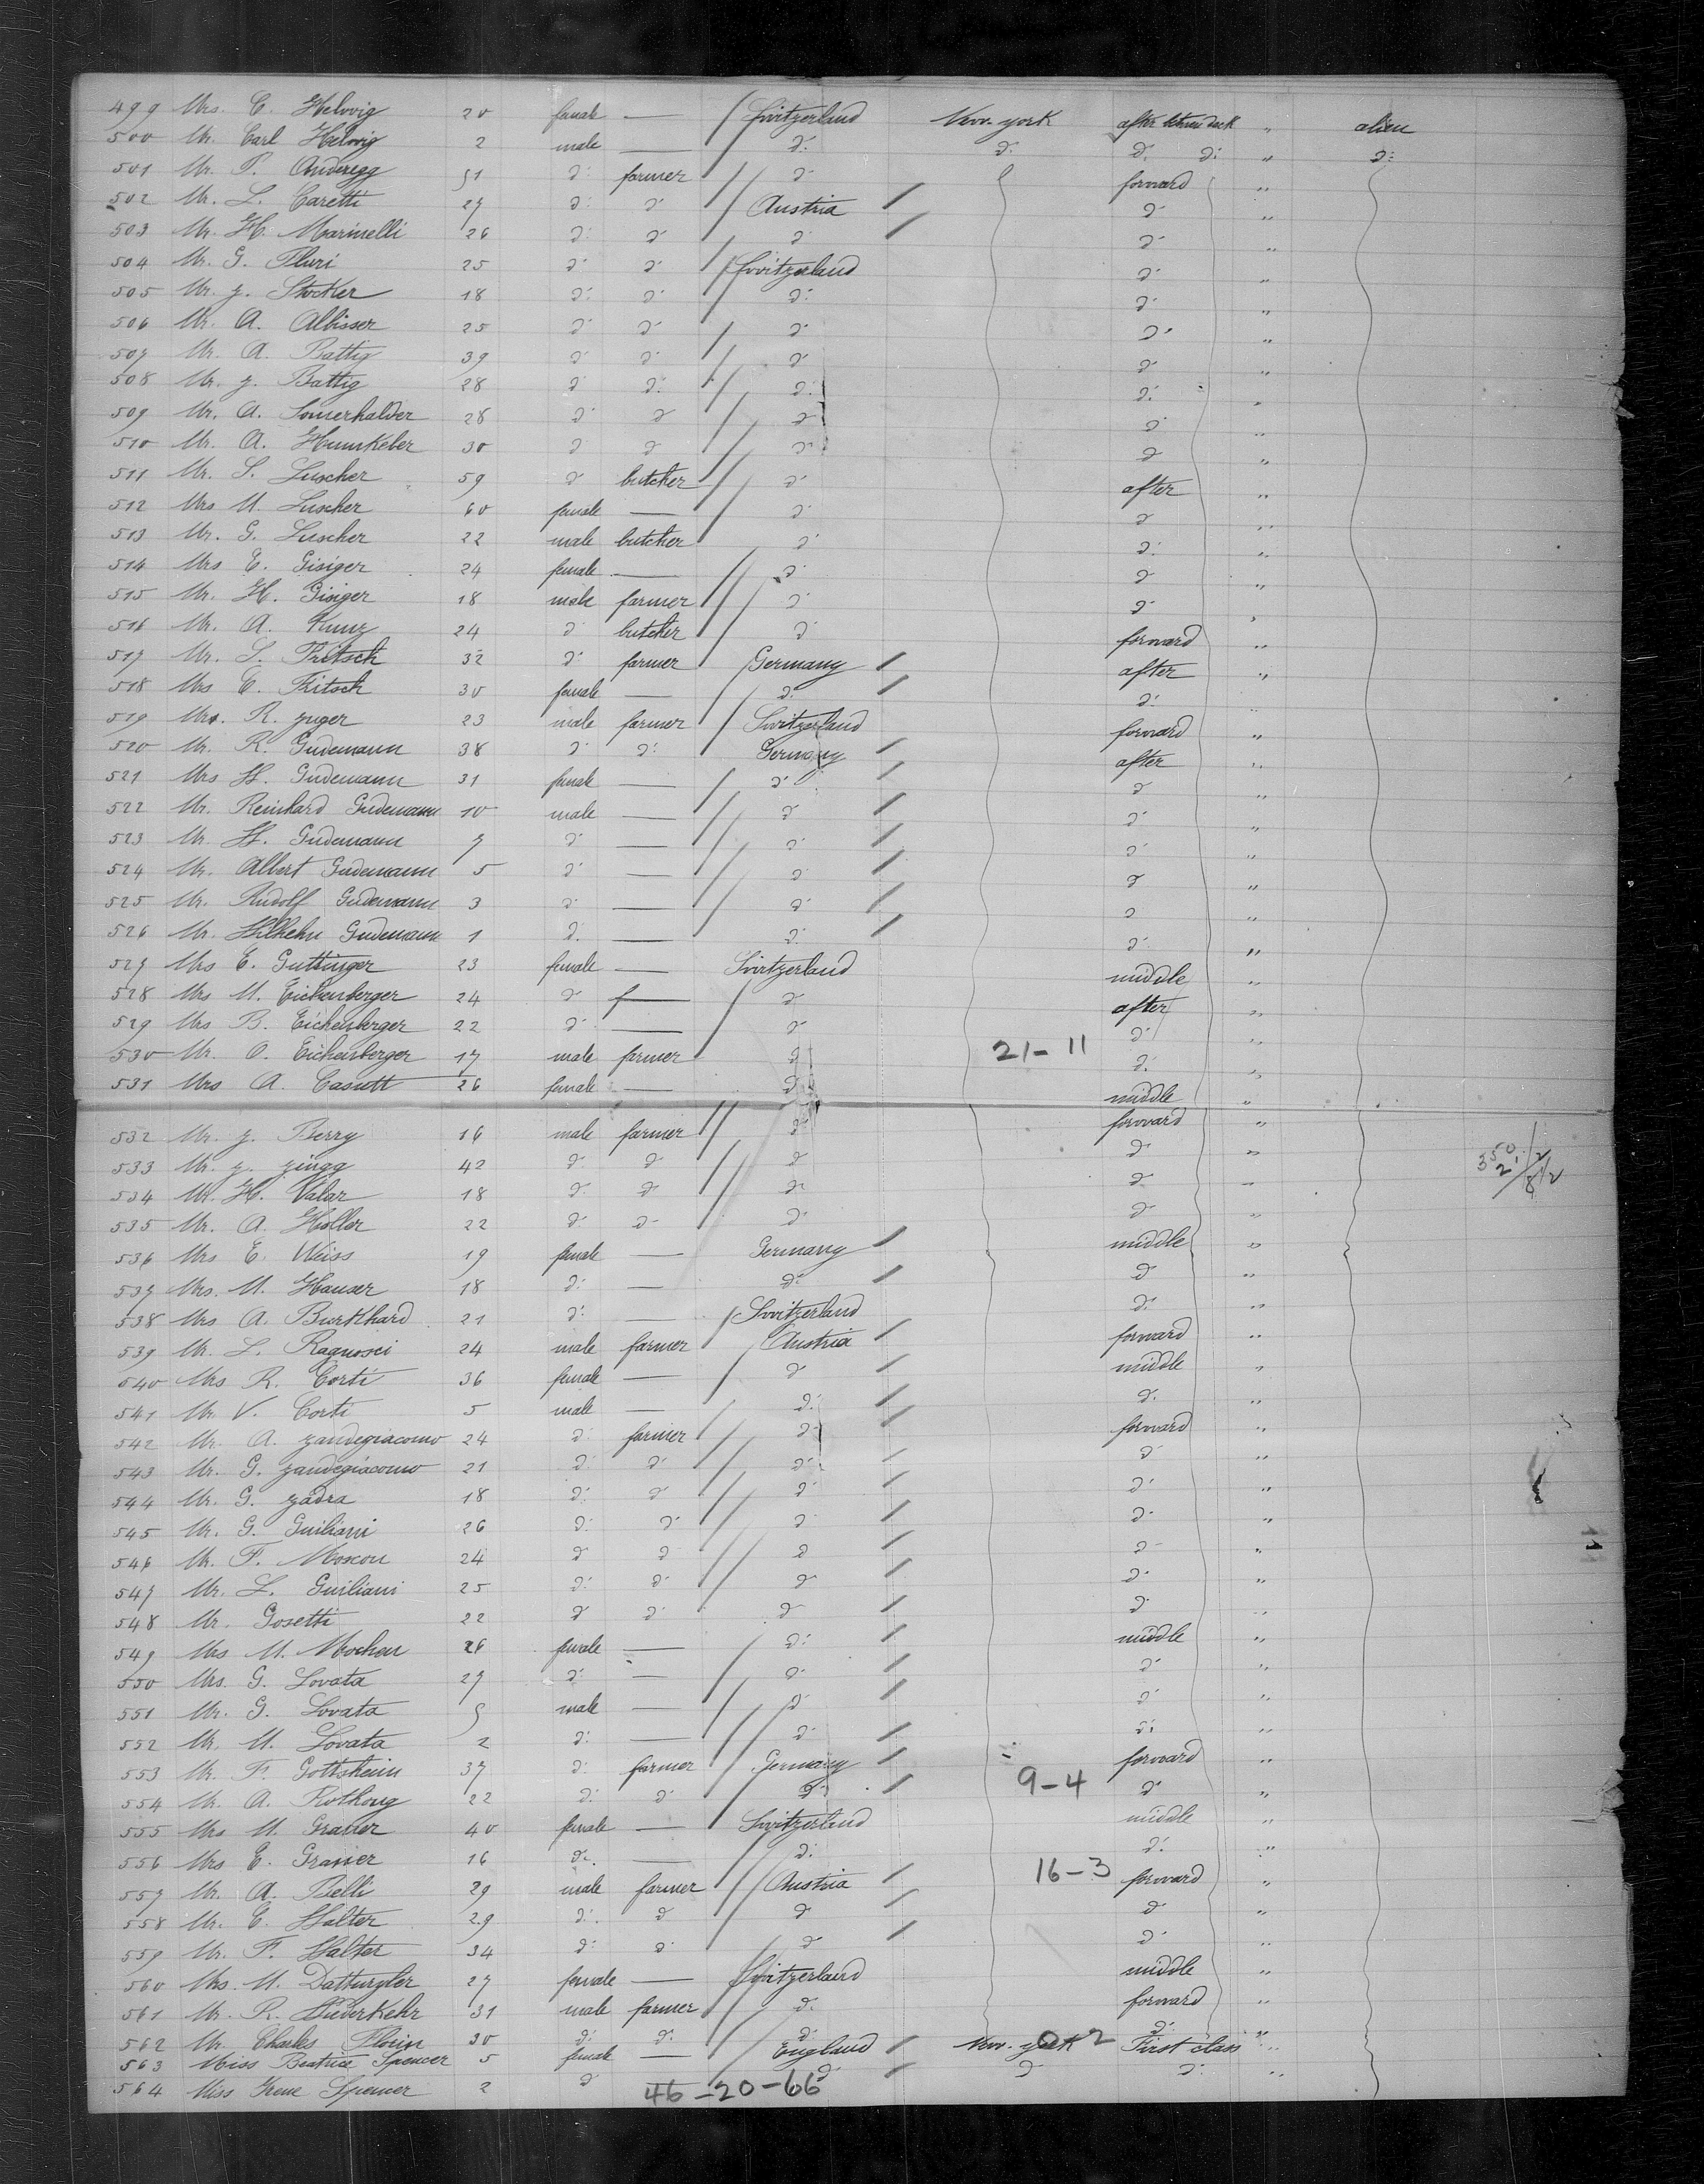 499 Mrs. C. Helwig 20 female — Switzerland New-york after between deck " alien
500 Mr. Carl Helwig 2 male — d: d: d: d: " d:
501 Mr. P. Anderegg 51 d: farmer d: forward "
502 Mr. L. Caretti 27 d: d: Austria d: "
503 Mr. H. Marinelli 26 d: d: d: d: "
504 Mr. G. Fluri 25 d: d: Switzerland d: "
505 Mr. J. Stocker 18 d: d: d: d: "
506 Mr. A. Albisser 25 d: d: d: d: "
507 Mr. A. Battig 39 d: d: d: d: "
508 Mr. J. Battig 28 d: d: d: d: "
509 Mr. A. Somerhalder 28 d: d: d: d: "
510 Mr. A. Hunkeler 30 d: d: d: d: "
511 Mr. S. Luscher 59 d: butcher d: after "
512 Mrs M. Luscher 60 female — d: d: "
513 Mr. G. Luscher 22 male butcher d: d: "
514 Mrs E. Gisiger 24 female — d: d: "
515 Mr. H. Gisiger 18 male farmer d: d: "
516 Mr. A. Kunz 24 d: butcher d: forward "
517 Mr. S. Fritsch 32 d: farmer Germany after "
518 Mrs E. Fritsch 30 female — d: d: "
519 Mr. R. Zuger 23 male farmer Switzerland forward "
520 Mr. R. Gudemann 38 d: d: Germany after "
521 Mrs H. Gudemann 31 female — d: d: "
522 Mr. Reinhard Gudemann 10 male — d: d: "
523 Mr. H. Gudemann 7 d: — d: d: "
524 Mr. Albert Gudemann 5 d: — d: d: "
525 Mr. Rudolf Gudemann 3 d: — d: d: "
526 Mr. Wilhelm Gudemann 1 d: — d: d: "
527 Mrs E. Guttinger 23 female — Switzerland middle "
528 Mrs M. Eichenberger 24 d: — d: after "
529 Mrs B. Eichenberger 22 d: — d: d: "
530 Mr. O. Eichenberger 17 male farmer d: 21-11 d: "
531 Mrs A. Casutt 26 female — d: middle "
532 Mr. J. Berry 16 male farmer d: forward "
533 Mr. J. Zingg 42 d: d: d: d: "
534 Mr. H. Valar 18 d: d: d: d: "
535 Mr. A. Holler 22 d: d: d: d: "
536 Mrs E. Weiss 19 female — Germany middle "
537 Mrs. M. Hauser 18 d: — d: d: "
538 Mrs A. Burkhard 21 d: — Switzerland d: "
539 Mr. L. Ragnosci 24 male farmer Austria forward "
540 Mrs R. Corti 36 female — d: middle "
541 Mr. V. Corti 5 male — d: d: "
542 Mr. A. Zandegiacomo 24 d: farmer d: forward "
543 Mr. G. Zandegiacomo 21 d: d: d: d: "
544 Mr. G. Zadra 18 d: d: d: d: "
545 Mr. G. Guiliani 26 d: d: d: d: "
546 Mr. F. Moscon 24 d: d: d: d: "
547 Mr. L. Guiliani 25 d: d: d: d: "
548 Mr. Gosetti 22 d: d: d: d: "
549 Mrs M. Mochen 26 female — d: middle "
550 Mrs. G. Lovata 27 d: — d: d: "
551 Mr. G. Lovata 5 male — d: d: "
552 Mr. M. Lovata 2 d: — d: d: "
553 Mr. F. Gottsheim 37 d: farmer Germany forward "
554 Mr. A. Rothong 22 d: d: d: 9-4 d: "
555 Mrs M. Grauer 40 female — Switzerland middle "
556 Mrs E. Grauer 16 d: — d: d: "
557 Mr. A. Belli 29 male farmer Austria 16-3 forward "
558 Mr. E. Walter 29 d: d: d: d: "
559 Mr. F. Walter 34 d: d: d: d: "
560 Mrs. M. Dattwyler 27 female — Switzerland middle "
561 Mr. R. Wiederkehr 31 male farmer d: forward "
562 Mr. Charles Florin 30 d: d: d: 0 2 d: "
563 Miss Beatrice Spencer 5 female — England New-york First class "
564 Miss Irene Spencer 2 d: d: d: d: "
46-20-66